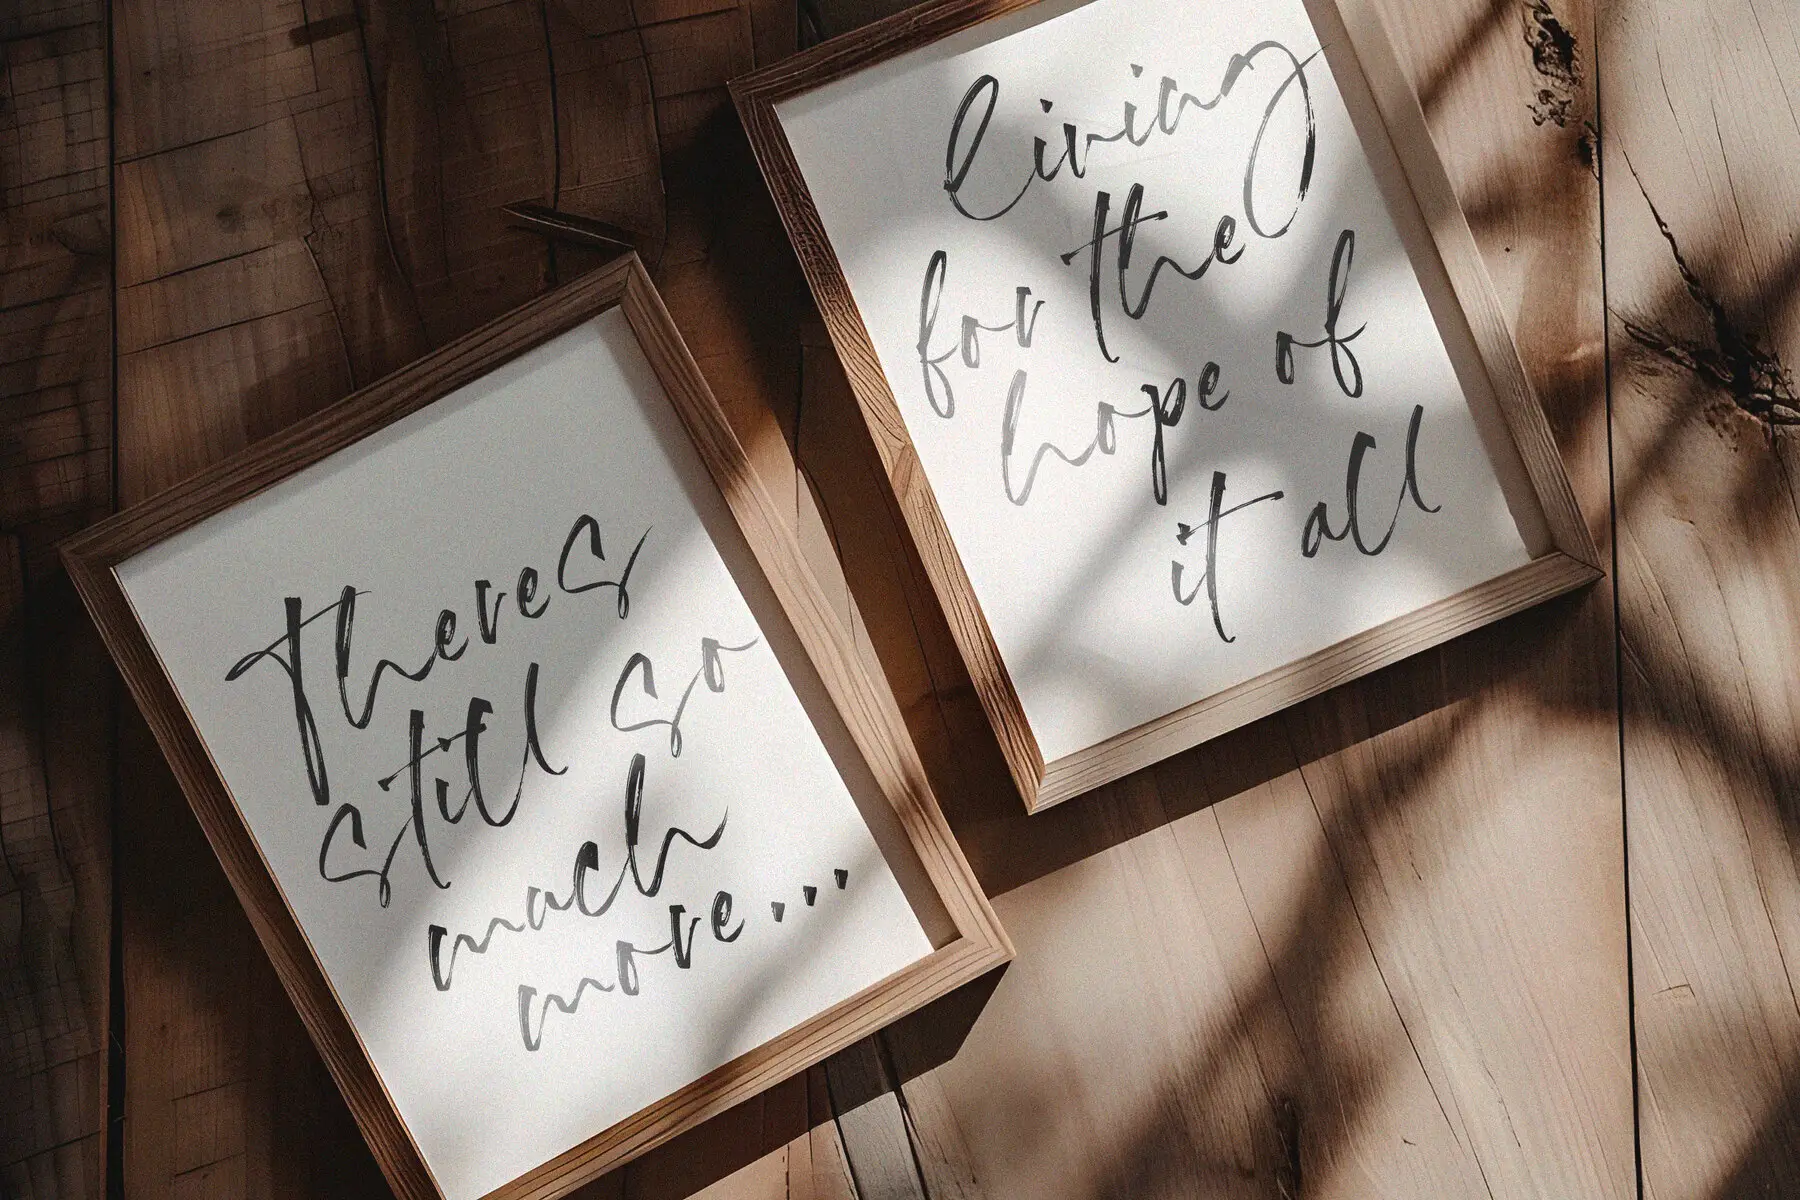 theres
still so
much
more...
living
for the
hope of
it all